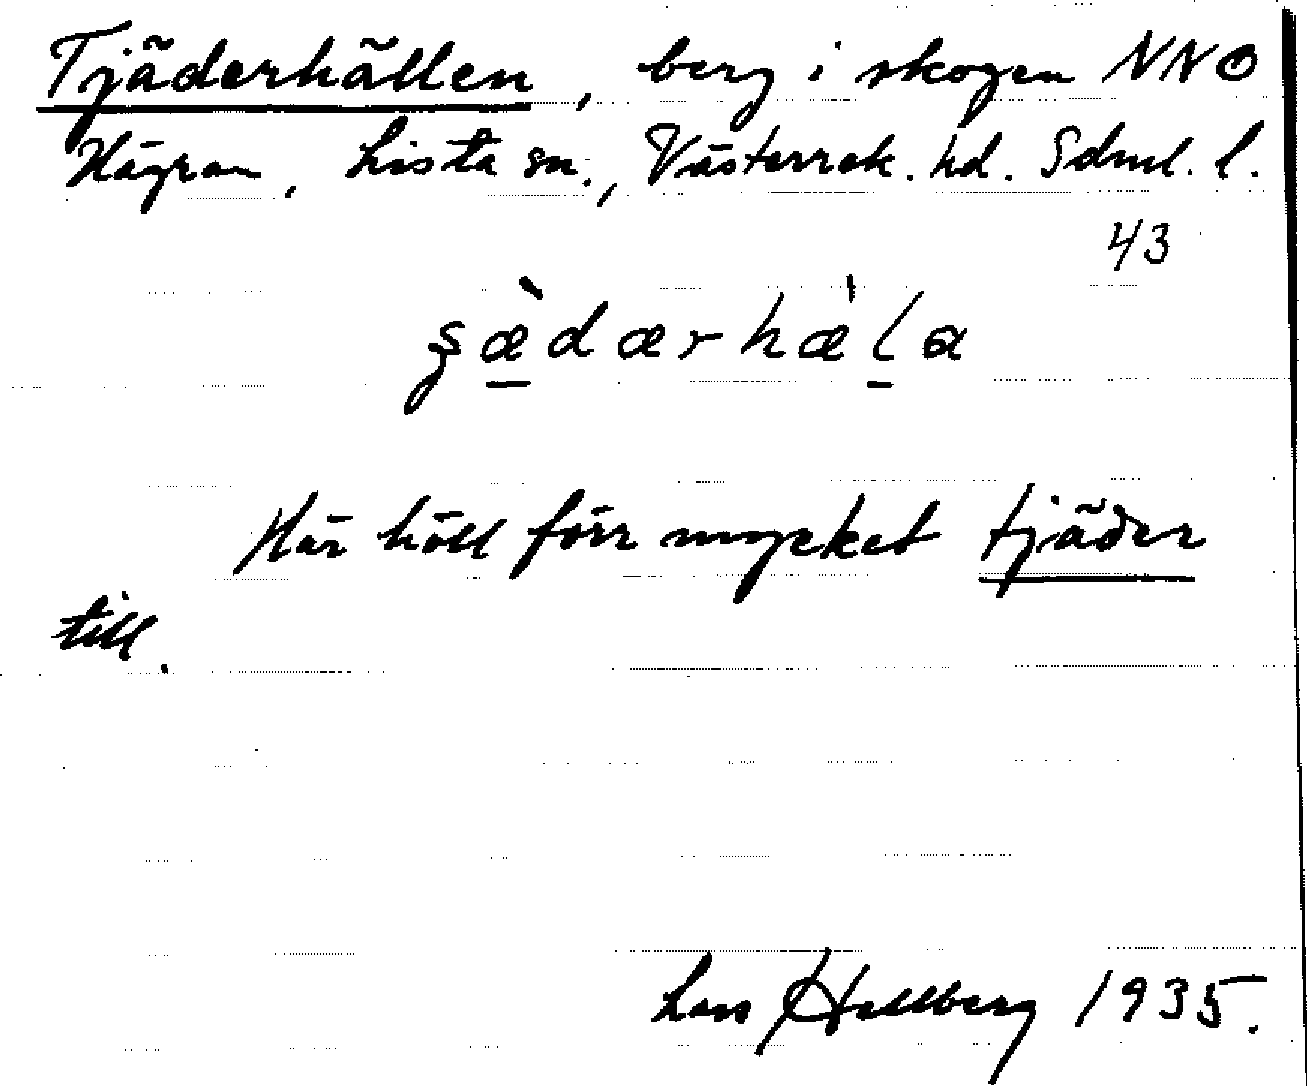 Tjäderhällen, berg i skogen NNO
Hägran, Lista sn., Västerrek. hd. Sdml. l.
43
Här höll förr mycket tjäder
till.
Lars Hellberg 1935.